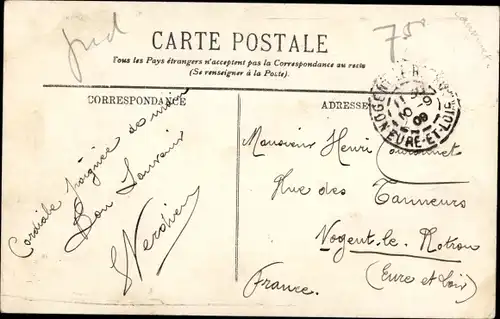 CARTE POSTALE
Tous les Pays étrangers n'acceptent pas la Correspondance au recto
(Se renseigner à la Poste.)
CORRESPONDANCE
ADRESSE
Cordiale poignée de main
Bon Souvenir
Monsieur Henri
Rue des Tanneurs
Nogent-le-Rotrou
(Eure et Loir)
France.
EURE-ET-LOIR
09
750